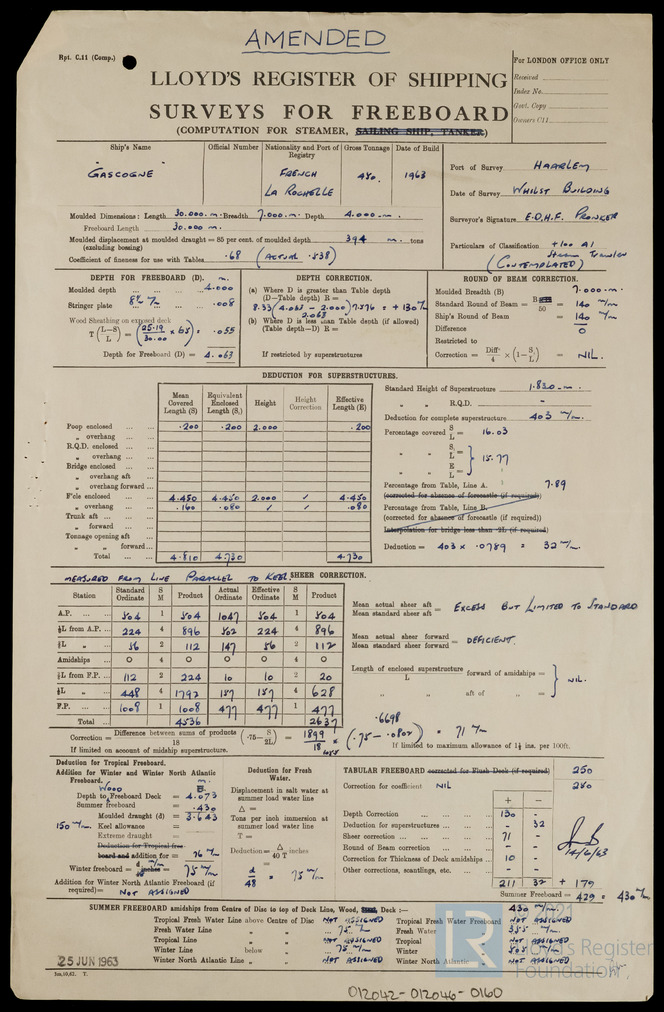 AMENDED
Rpt. C.11 (Comp.)
For LONDON OFFICE ONLY
Received
Index No.
Govt. Copy
Owners C11
LLOYD'S REGISTER OF SHIPPING
SURVEYS FOR FREEBOARD
(COMPUTATION FOR STEAMER, SAILING SHIP, TANKER)
Ship's Name Official Number Nationality and Port of Registry Gross Tonnage Date of Build
"GASCOGNE" FRENCH LA ROCHELLE 450. 1963
Port of Survey HAARLEM
Date of Survey WHILST BUILDING
Surveyor's Signature E.D.H.F. PRONKER
Particulars of Classification +100 A1
(CONTEMPLATED)
Moulded Dimensions: Length 30.000.m. Breadth 7.000.m. Depth 4.000.m.
Freeboard Length 30.000.m.
Moulded displacement at moulded draught = 85 per cent. of moulded depth 394 m. tons
(excluding bossing)
Coefficient of fineness for use with Tables .68 (ACTUAL .538)
DEPTH FOR FREEBOARD (D). m.
Moulded depth 4.000
Stringer plate .008
Wood Sheathing on exposed deck
T(L-S/L) = (25.19/30.00 × 65) = .055
Depth for Freeboard (D) = 4.063
DEPTH CORRECTION.
(a) Where D is greater than Table depth
(D-Table depth) R =
8.33(4.063 - 2.000)7.576 = +130
2.063
(b) Where D is less than Table depth (if allowed)
(Table depth-D) R =
If restricted by superstructures
ROUND OF BEAM CORRECTION.
Moulded Breadth (B) 7.000.m.
Standard Round of Beam = B/50 = 140 m/m
Ship's Round of Beam = 140 m/m
Difference 0
Restricted to
Correction = Diff/4 × (1-S/L) = NIL.
DEDUCTION FOR SUPERSTRUCTURES.
Mean Covered Length (S) Equivalent Enclosed Length (S₁) Height Height Correction Effective Length (E)
Poop enclosed .200 .200 2.000 .200
" overhang
R.Q.D. enclosed
" overhang
Bridge enclosed
" overhang aft
" overhang forward
F'cle enclosed 4.450 4.450 2.000 / 4.450
" overhang .160 .080 / / .080
Trunk aft
" forward
Tonnage opening aft
" " forward
Total 4.810 4.730 4.730
Standard Height of Superstructure 1.830.m.
" " R.Q.D. -
Deduction for complete superstructure 403 m/m.
Percentage covered S/L = 16.03
" " S₁/L =
" " E/L = } 15.77
Percentage from Table, Line A. 7.89
(corrected for absence of forecastle (if required))
Percentage from Table, Line B.
(corrected for absence of forecastle (if required))
Interpolation for bridge less than ·2L (if required)
Deduction = 403 × .0789 = 32 m/m.
MEASURED FROM LINE PARALLEL TO KEEL. SHEER CORRECTION.
Station Standard Ordinate S M Product Actual Ordinate Effective Ordinate S M Product
A.P. 504 1 504 1047 504 1 504
⅙L from A.P. 224 4 896 502 224 4 896
⅓L " 56 2 112 147 56 2 112
Amidships 0 4 0 0 0 4 0
⅓L from F.P. 112 2 224 10 10 2 20
⅙L " 448 4 1792 157 157 4 628
F.P. 1008 1 1008 477 477 1 477
Total 4536 2637
Mean actual sheer aft / Mean standard sheer aft = EXCESS BUT LIMITED TO STANDARD
Mean actual sheer forward / Mean standard sheer forward = DEFICIENT.
Length of enclosed superstructure / L forward of amidships =
" " aft of " = } NIL.
Correction = Difference between sums of products / 18 (·75-S/2L) = 1899/18 (.75 - .0802) = 71 m/m
.6698
If limited on account of midship superstructure.
If limited to maximum allowance of 1½ ins. per 100ft.
Deduction for Tropical Freeboard.
Addition for Winter and Winter North Atlantic Freeboard.
Wood m.
Depth to Freeboard Deck = 4.073
Summer freeboard = .430
Moulded draught (d) = 3.643
150 m/m. Keel allowance =
Extreme draught =
Deduction for Tropical freeboard and addition for = 76 m/m
Winter freeboard = d/48 inches = 75 m/m.
Addition for Winter North Atlantic Freeboard (if required) = NOT ASSIGNED
Deduction for Fresh Water.
Displacement in salt water at summer load water line
Δ =
Tons per inch immersion at summer load water line
T =
Deduction = Δ/40 T
= d/48 = 75 m/m.
TABULAR FREEBOARD corrected for Flush Deck (if required) 250
Correction for coefficient NIL 250
+ -
Depth Correction 130 -
Deduction for superstructures - 32
Sheer correction 71 -
Round of Beam correction - -
Correction for Thickness of Deck amidships 10 -
Other corrections, scantlings, etc. - -
211 32 + 179
14/6/63
Summer Freeboard = 429 = 430 m/m.
SUMMER FREEBOARD amidships from Centre of Disc to top of Deck Line, Wood, Steel, Deck :— 430 m/m.
Tropical Fresh Water Line above Centre of Disc NOT ASSIGNED Tropical Fresh Water Freeboard NOT ASSIGNED
Fresh Water Line " " 75 m/m. Fresh Water " 355 m/m.
Tropical Line " " NOT ASSIGNED Tropical " NOT ASSIGNED
Winter Line below " 75 m/m. Winter " 505 m/m.
Winter North Atlantic Line " " NOT ASSIGNED Winter North Atlantic " NOT ASSIGNED
25 JUN 1963
LR
Lloyd's Register
Foundation
012042-012046-0160